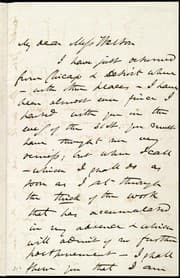 My dear Miss Weston
I have just returned
from Chicago & Detroit where
— with other places — I have
been almost ever since I
parted with you in the
of the Dist. You must
have thought me very
remiss; but when I call
— which I shall do as
soon as I get through
the thick of the work
that has accumulated
in my absence & which
will admit of no further
postponement — I shall
show you that I am